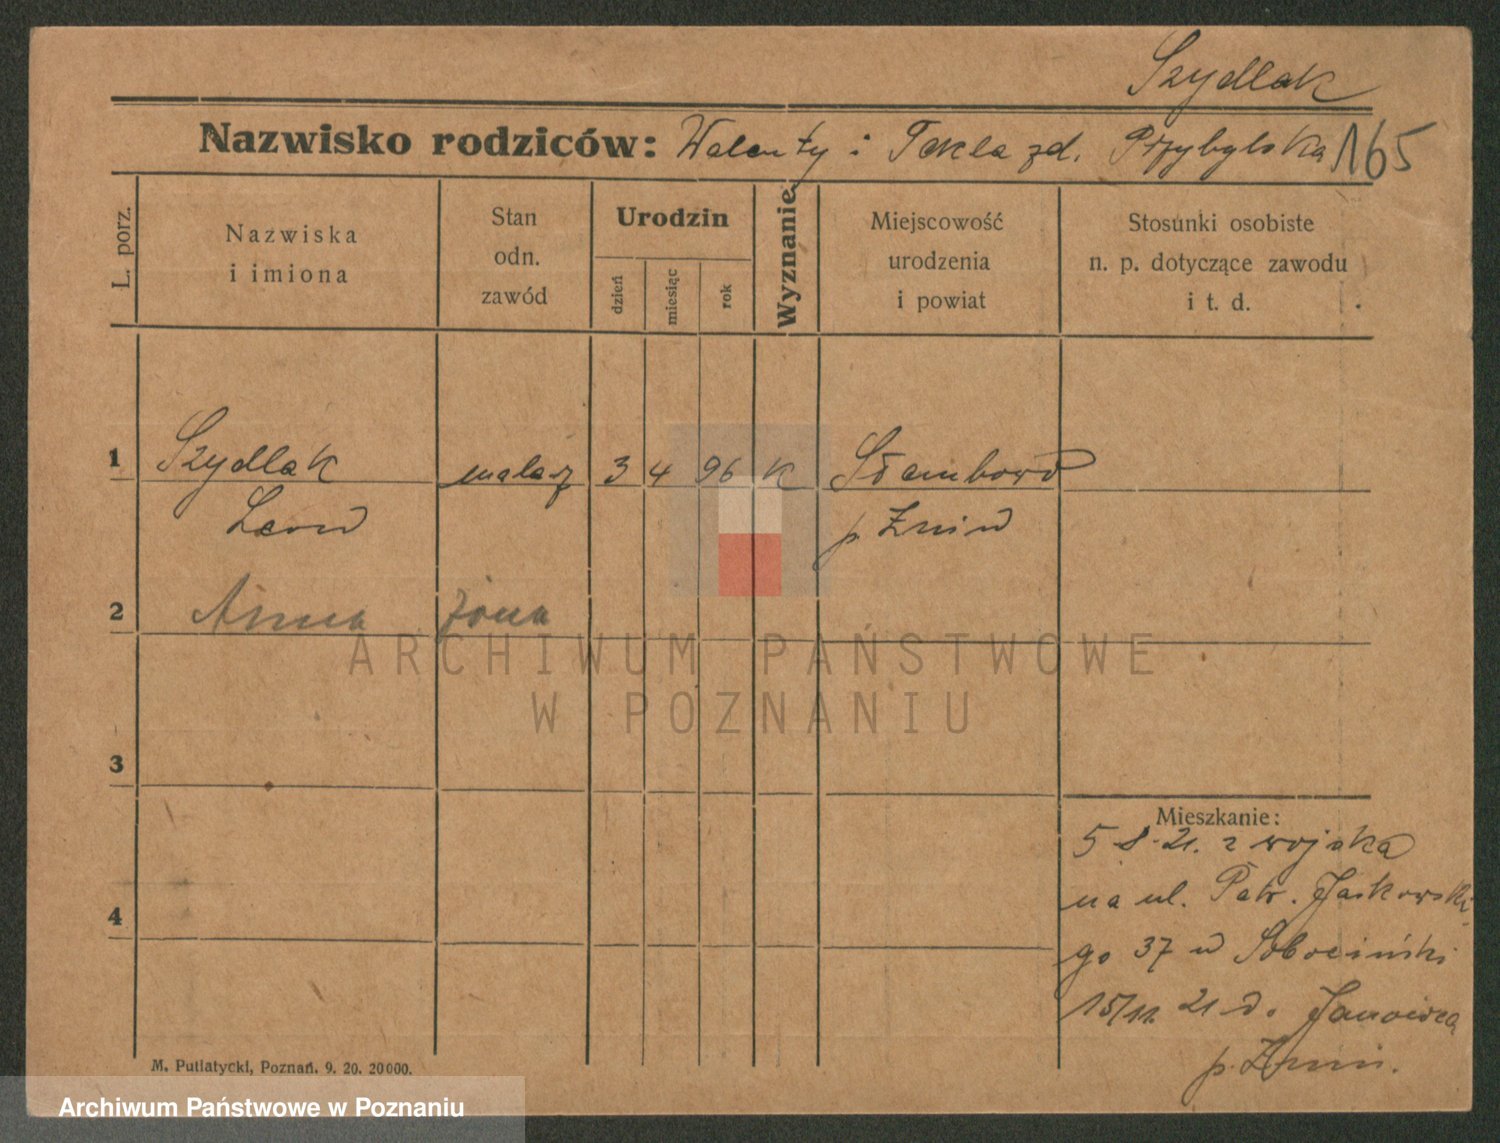 Szydlak
Nazwisko rodziców: Walenty i Tekla zd. Przybylska 165
L. porz.
Nazwiska
i imiona
Stan
odn.
zawód
Urodzin
dzień
miesiąc
rok
Wyznanie
Miejscowość
urodzenia
i powiat
Stosunki osobiste
n. p. dotyczące zawodu
i t. d.
1 Szydlak malarz 3 4 96 K
Leon p. Żnin
2 Anna żona
3
4
ARCHIWUM PAŃSTWOWE
W POZNANIU
Mieszkanie:
5-8-21. z wojska
na ul. Patr. Jaskowski-
go 37 u Sobociński
15/11. 21 do Janowca
p. Żnin.
M. Putiatycki, Poznań. 9. 20. 20000.
Archiwum Państwowe w Poznaniu